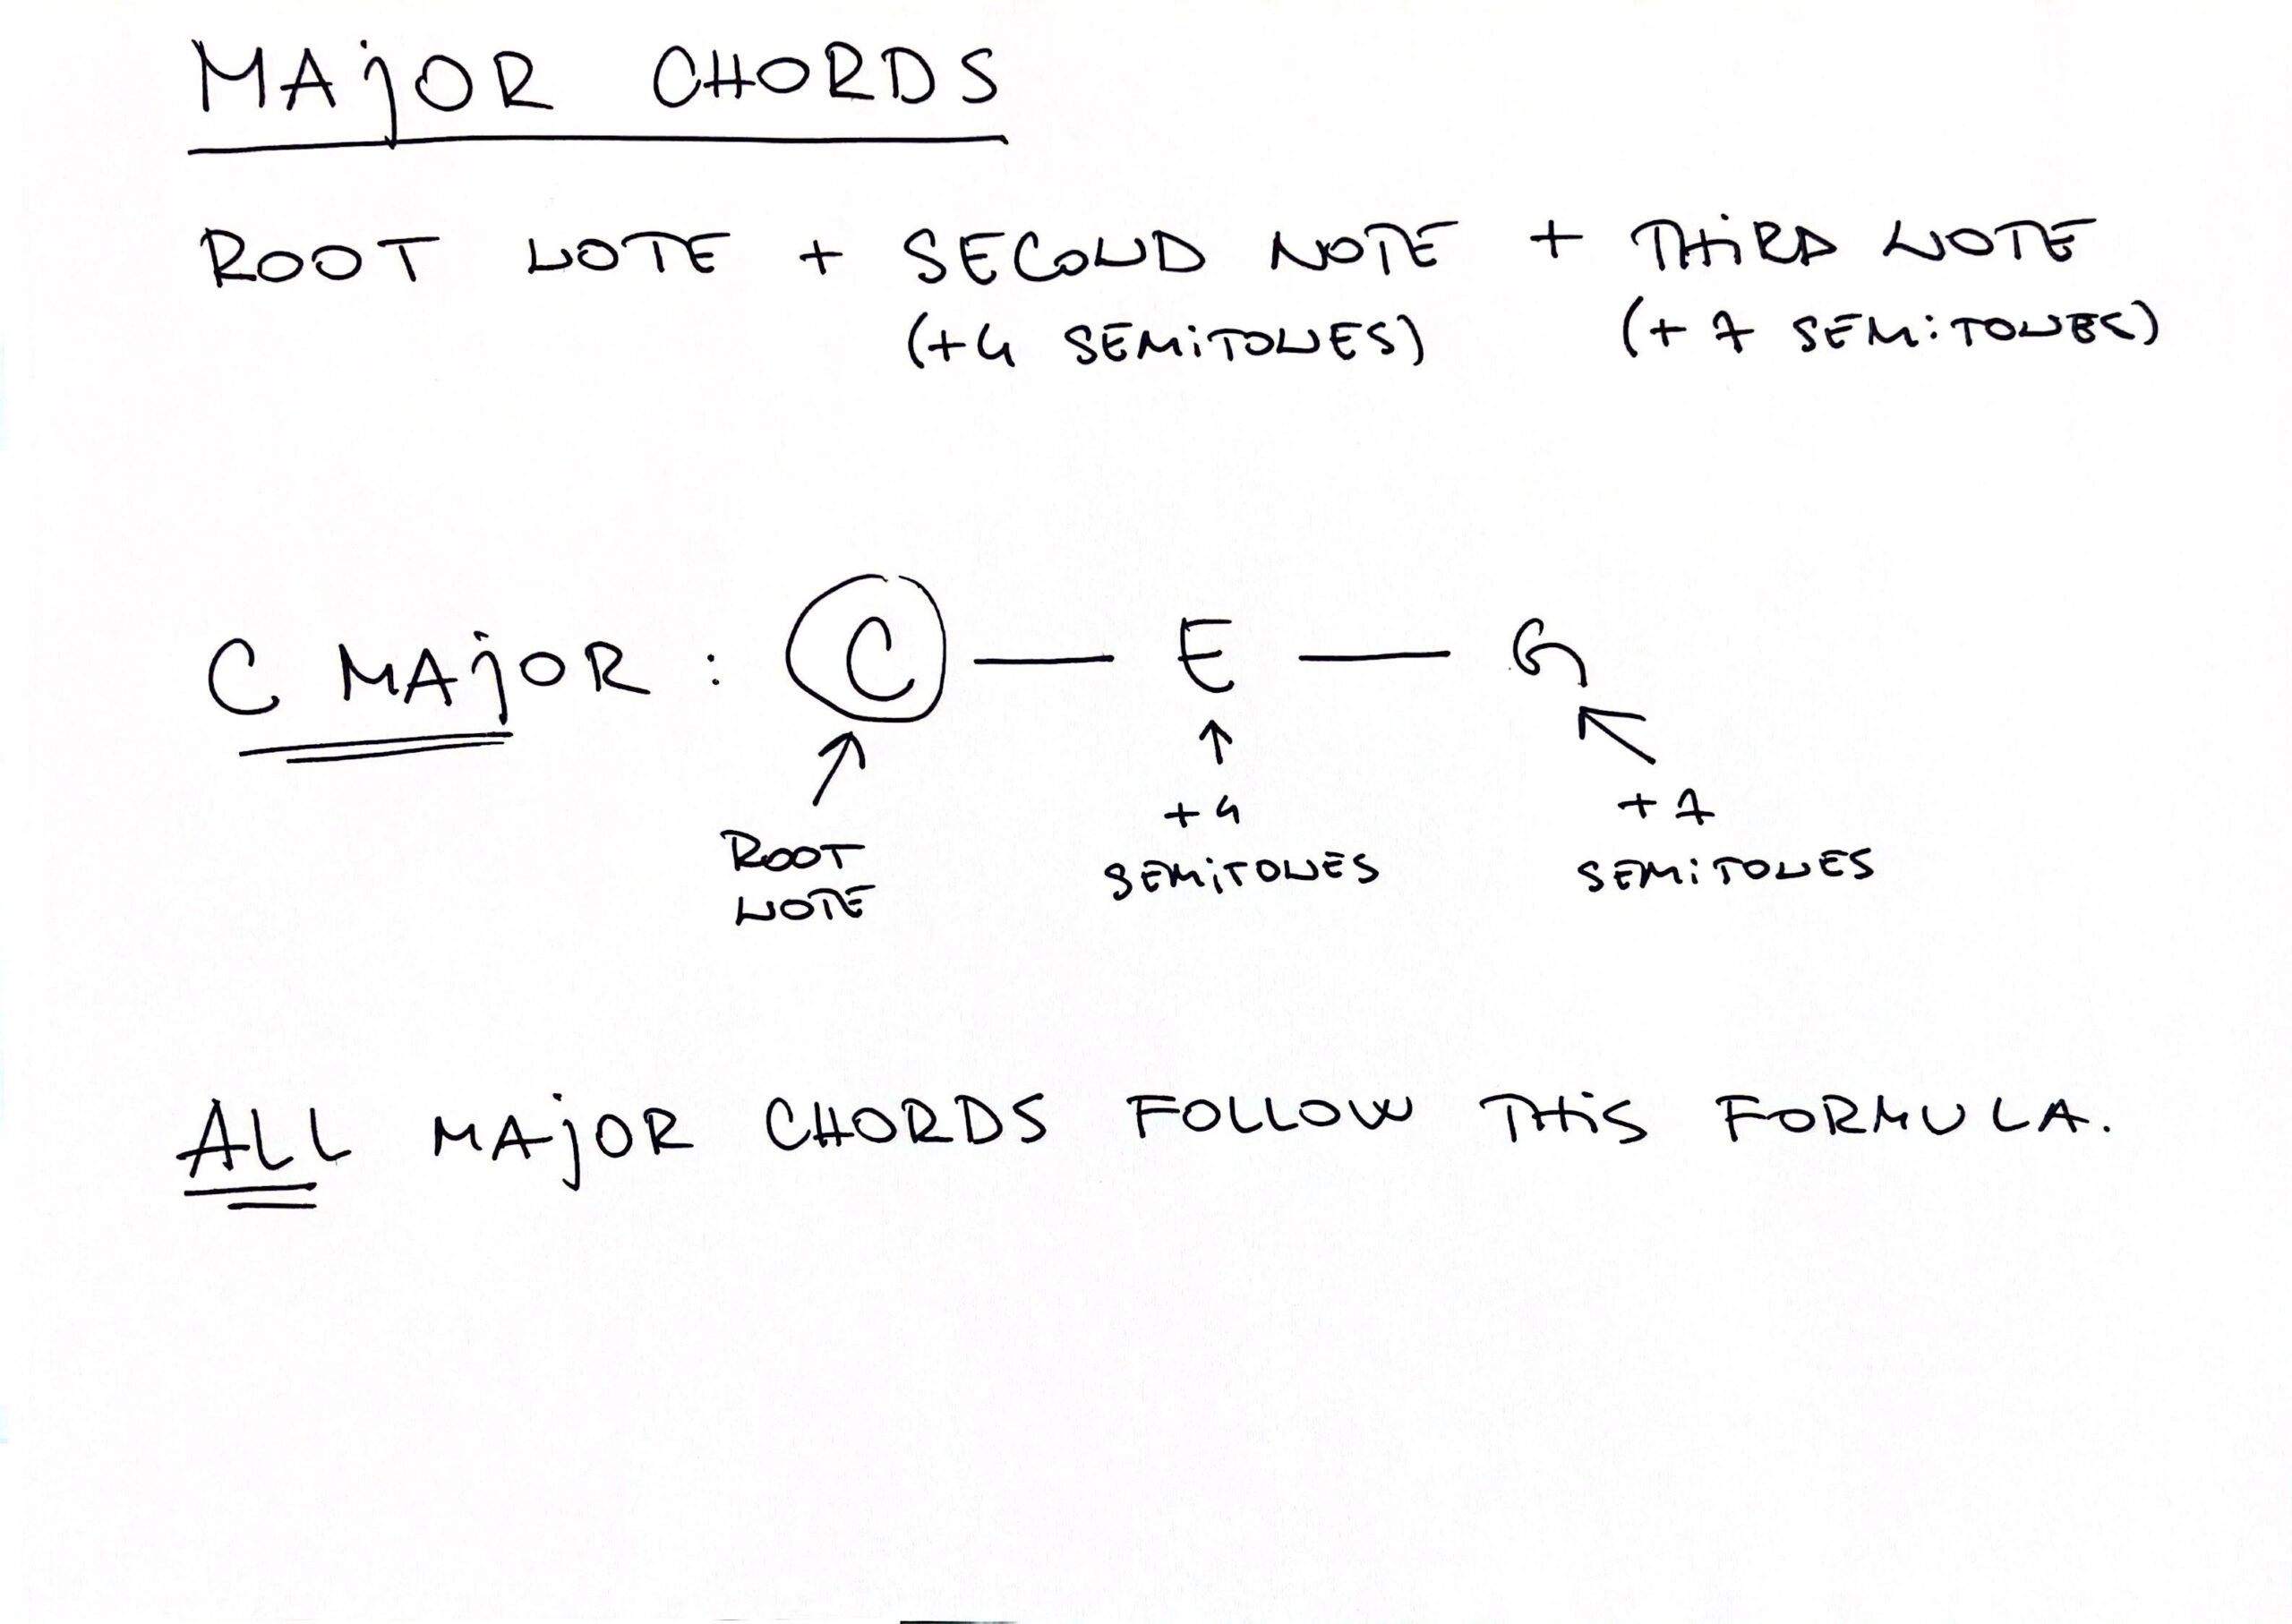 MAjOR CHORDS
ROOT NOTE + SECOND NOTE + THiRD NOTE
(+4 SEMiTONES) (+ 7 SEMiTONES)
C MAjOR : C — E — G
ROOT NOTE
+4 SEMiTONES
+7 SEMiTONES
ALL MAjOR CHORDS FOLLOW THiS FORMULA.